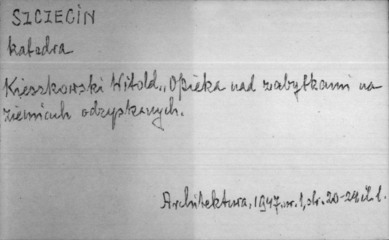 SZCZECIN
katedra
Kieszkowski Witold „Opieka nad zabytkami na
ziemiach odzyskanych.
Architektura, 1947 nr. 1, str. 20-24 il 1.